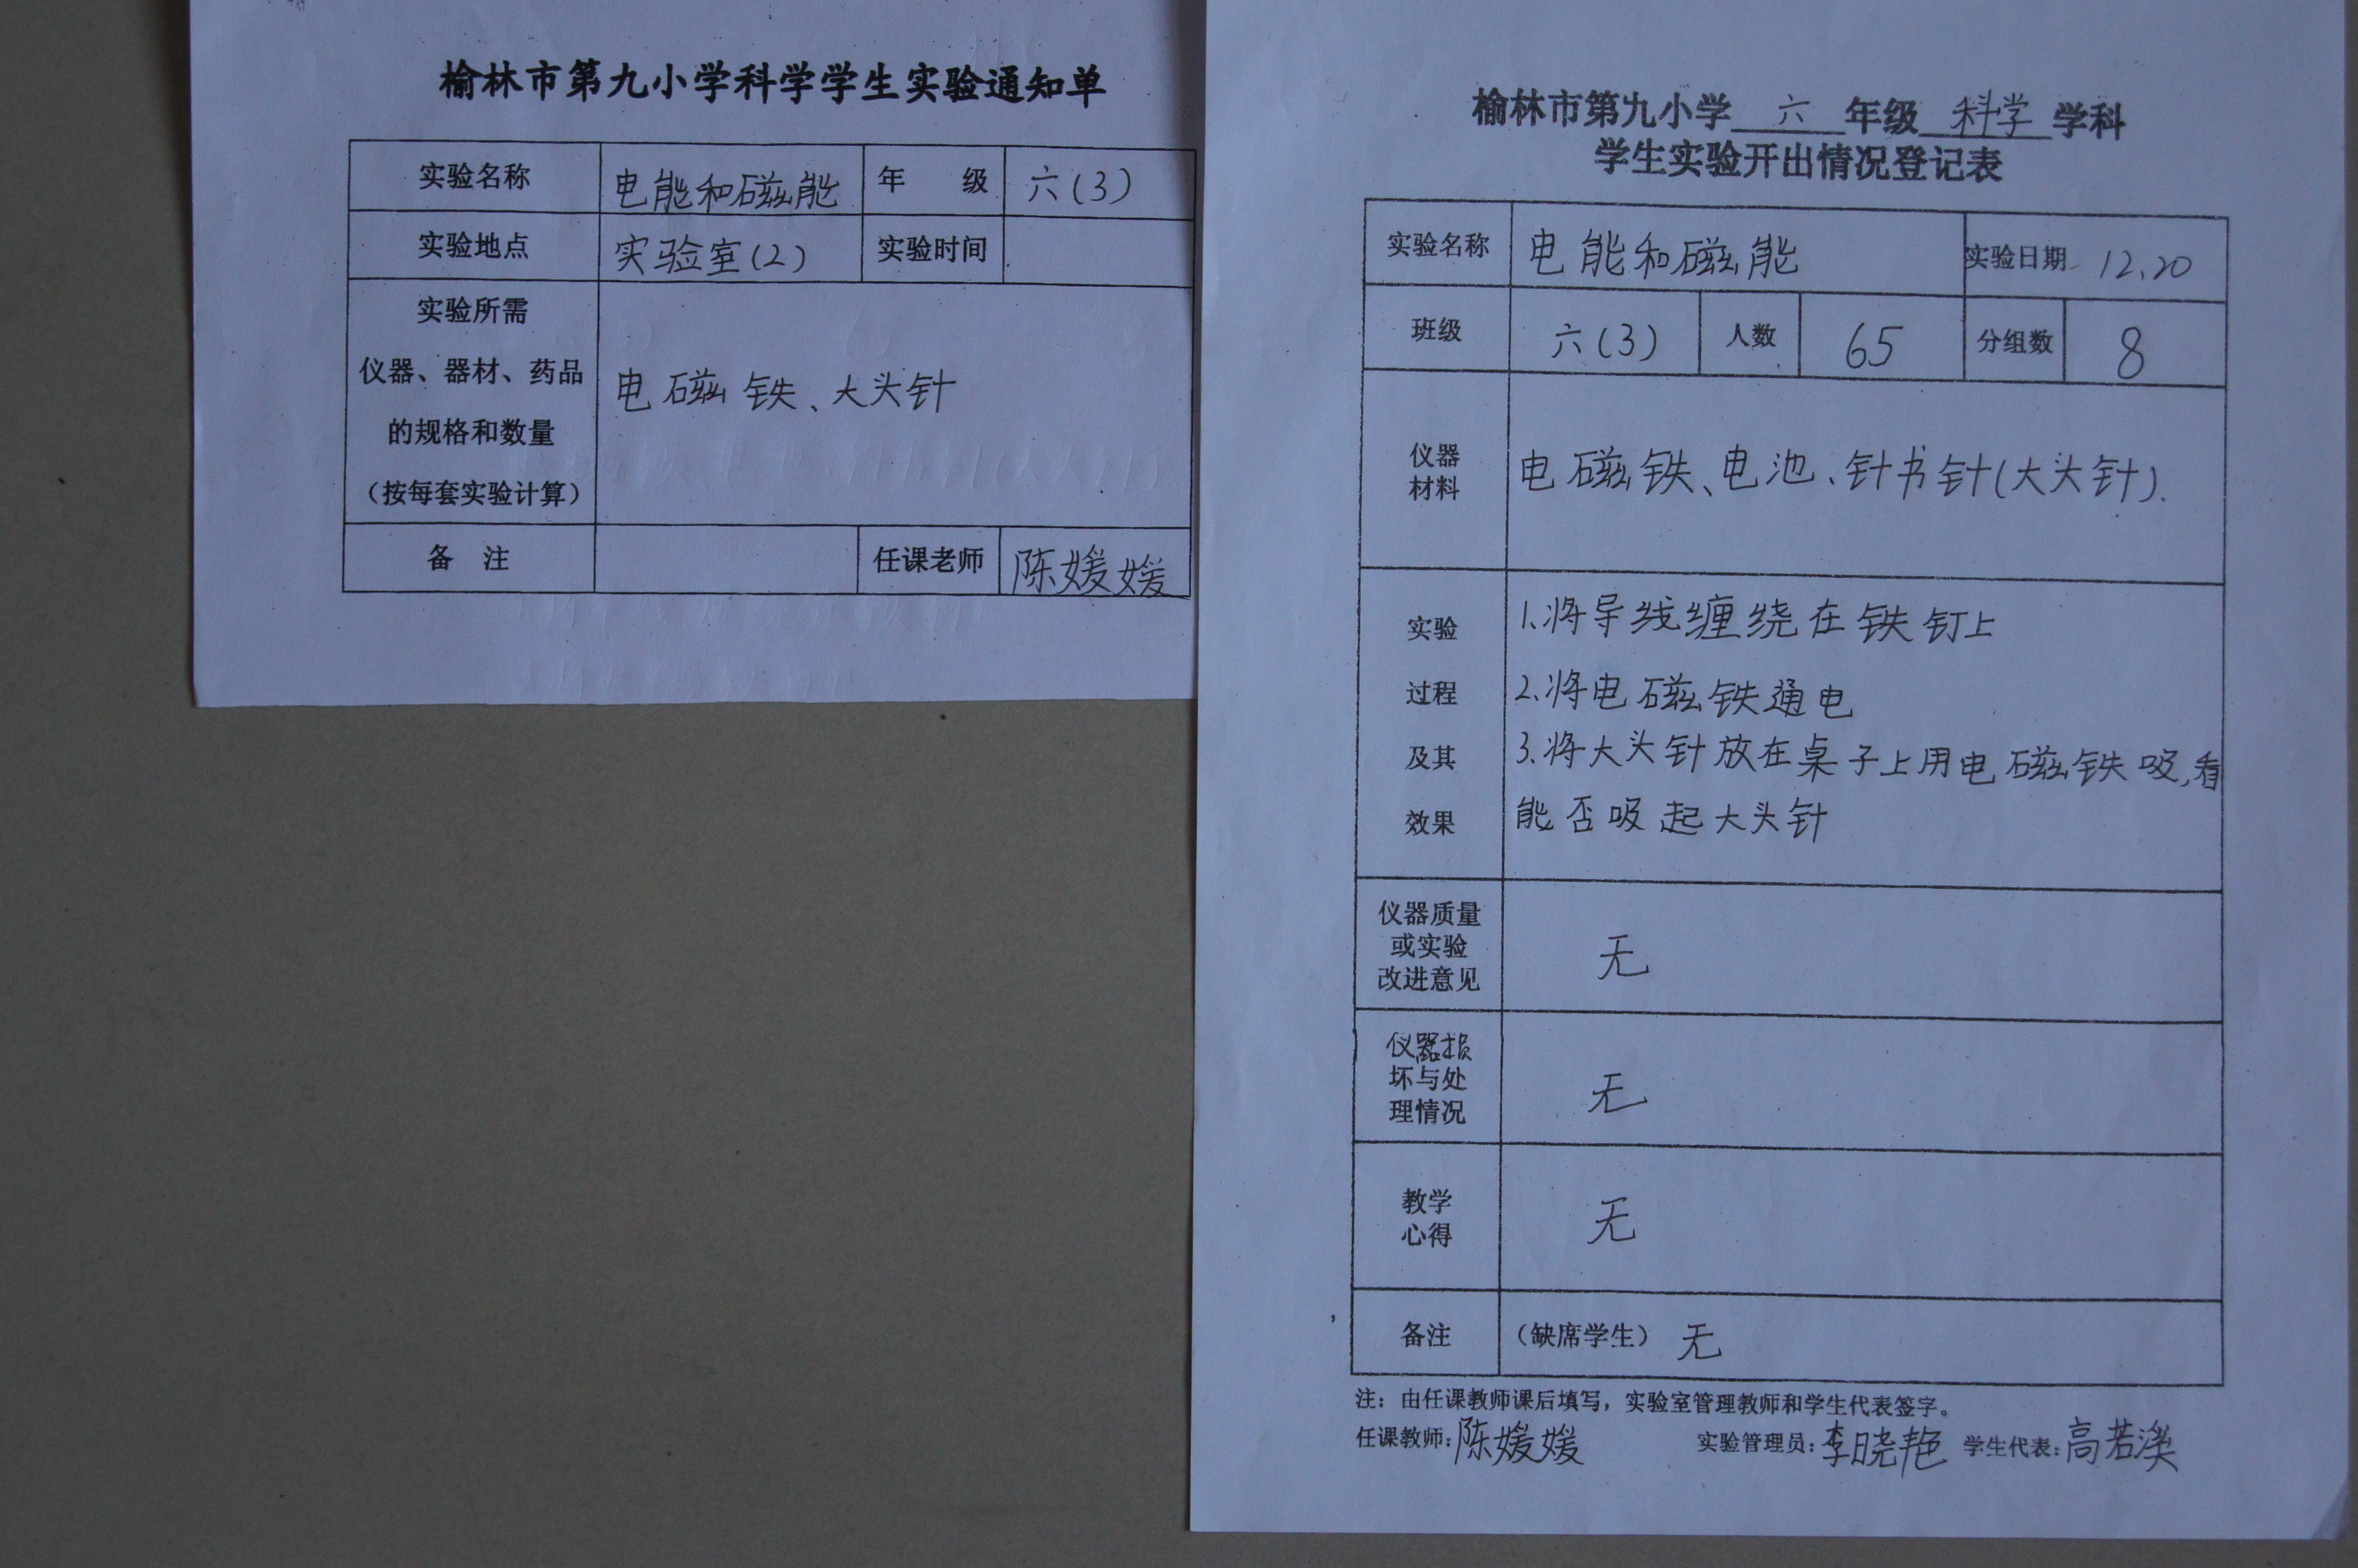 榆林市第九小学科学学生实验通知单
实验名称 电能和磁能 年 级 六(3)
实验地点 实验室(2) 实验时间
实验所需
仪器、器材、药品
的规格和数量
(按每套实验计算)
电磁铁、大头针
备 注 任课老师 陈媛媛
榆林市第九小学 六 年级 科学 学科
学生实验开出情况登记表
实验名称 电能和磁能 实验日期 12.20
班级 六(3) 人数 65 分组数 8
仪器
材料
电磁铁、电池、针书针(大头针).
实验
过程
及其
效果
1.将导线缠绕在铁钉上
2.将电磁铁通电
3.将大头针放在桌子上用电磁铁吸,看
能否吸起大头针
仪器质量
或实验
改进意见
无
仪器损
坏与处
理情况
无
教学
心得
无
备注 (缺席学生) 无
注:由任课教师课后填写,实验室管理教师和学生代表签字。
任课教师:陈媛媛 实验管理员:李晓艳 学生代表:高若渼